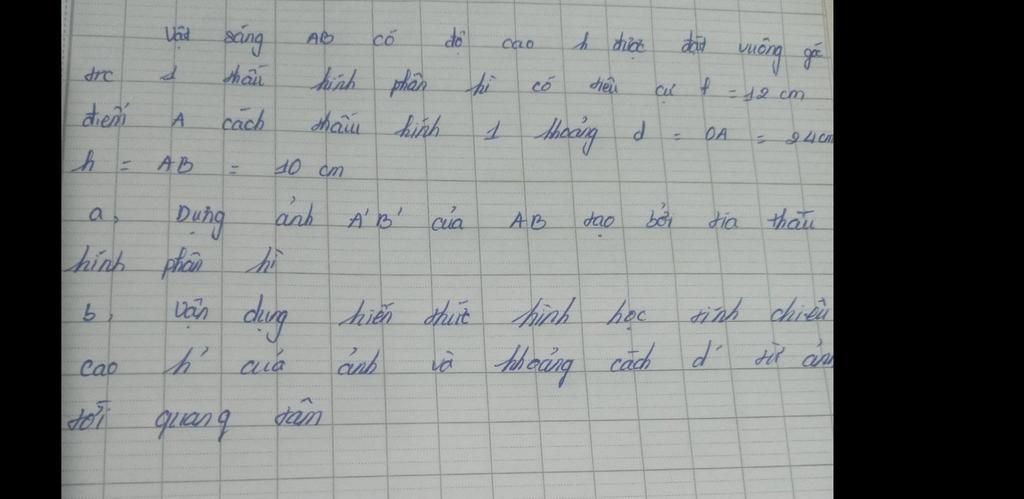 Vật sáng AB có độ cao h được đặt vuông gó
trc 1 thấu kính phân kì có tiêu cự f = 12 cm
điểm A cách thấu kính 1 khoảng d = OA = 24 cm
h = AB = 10 cm
a, Dựng ảnh A'B' của AB tạo bởi tia thấu
kính phân kì
b, Vận dụng kiến thức hình học tính chiều
cao h' của ảnh và khoảng cách d' từ ản
tới quang tâm